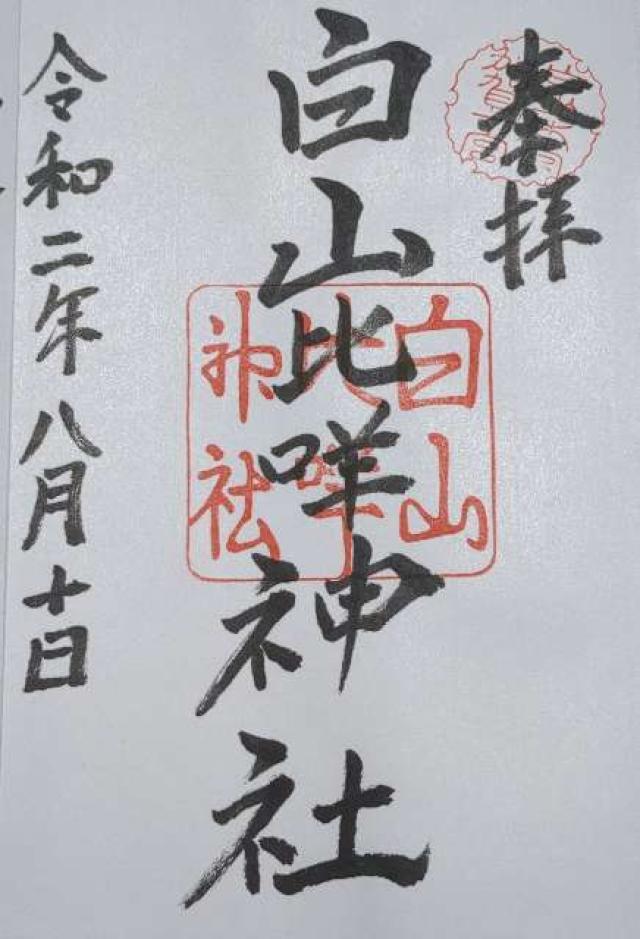 奉拝
白山比咩神社
白山比咩神社
令和二年八月十日